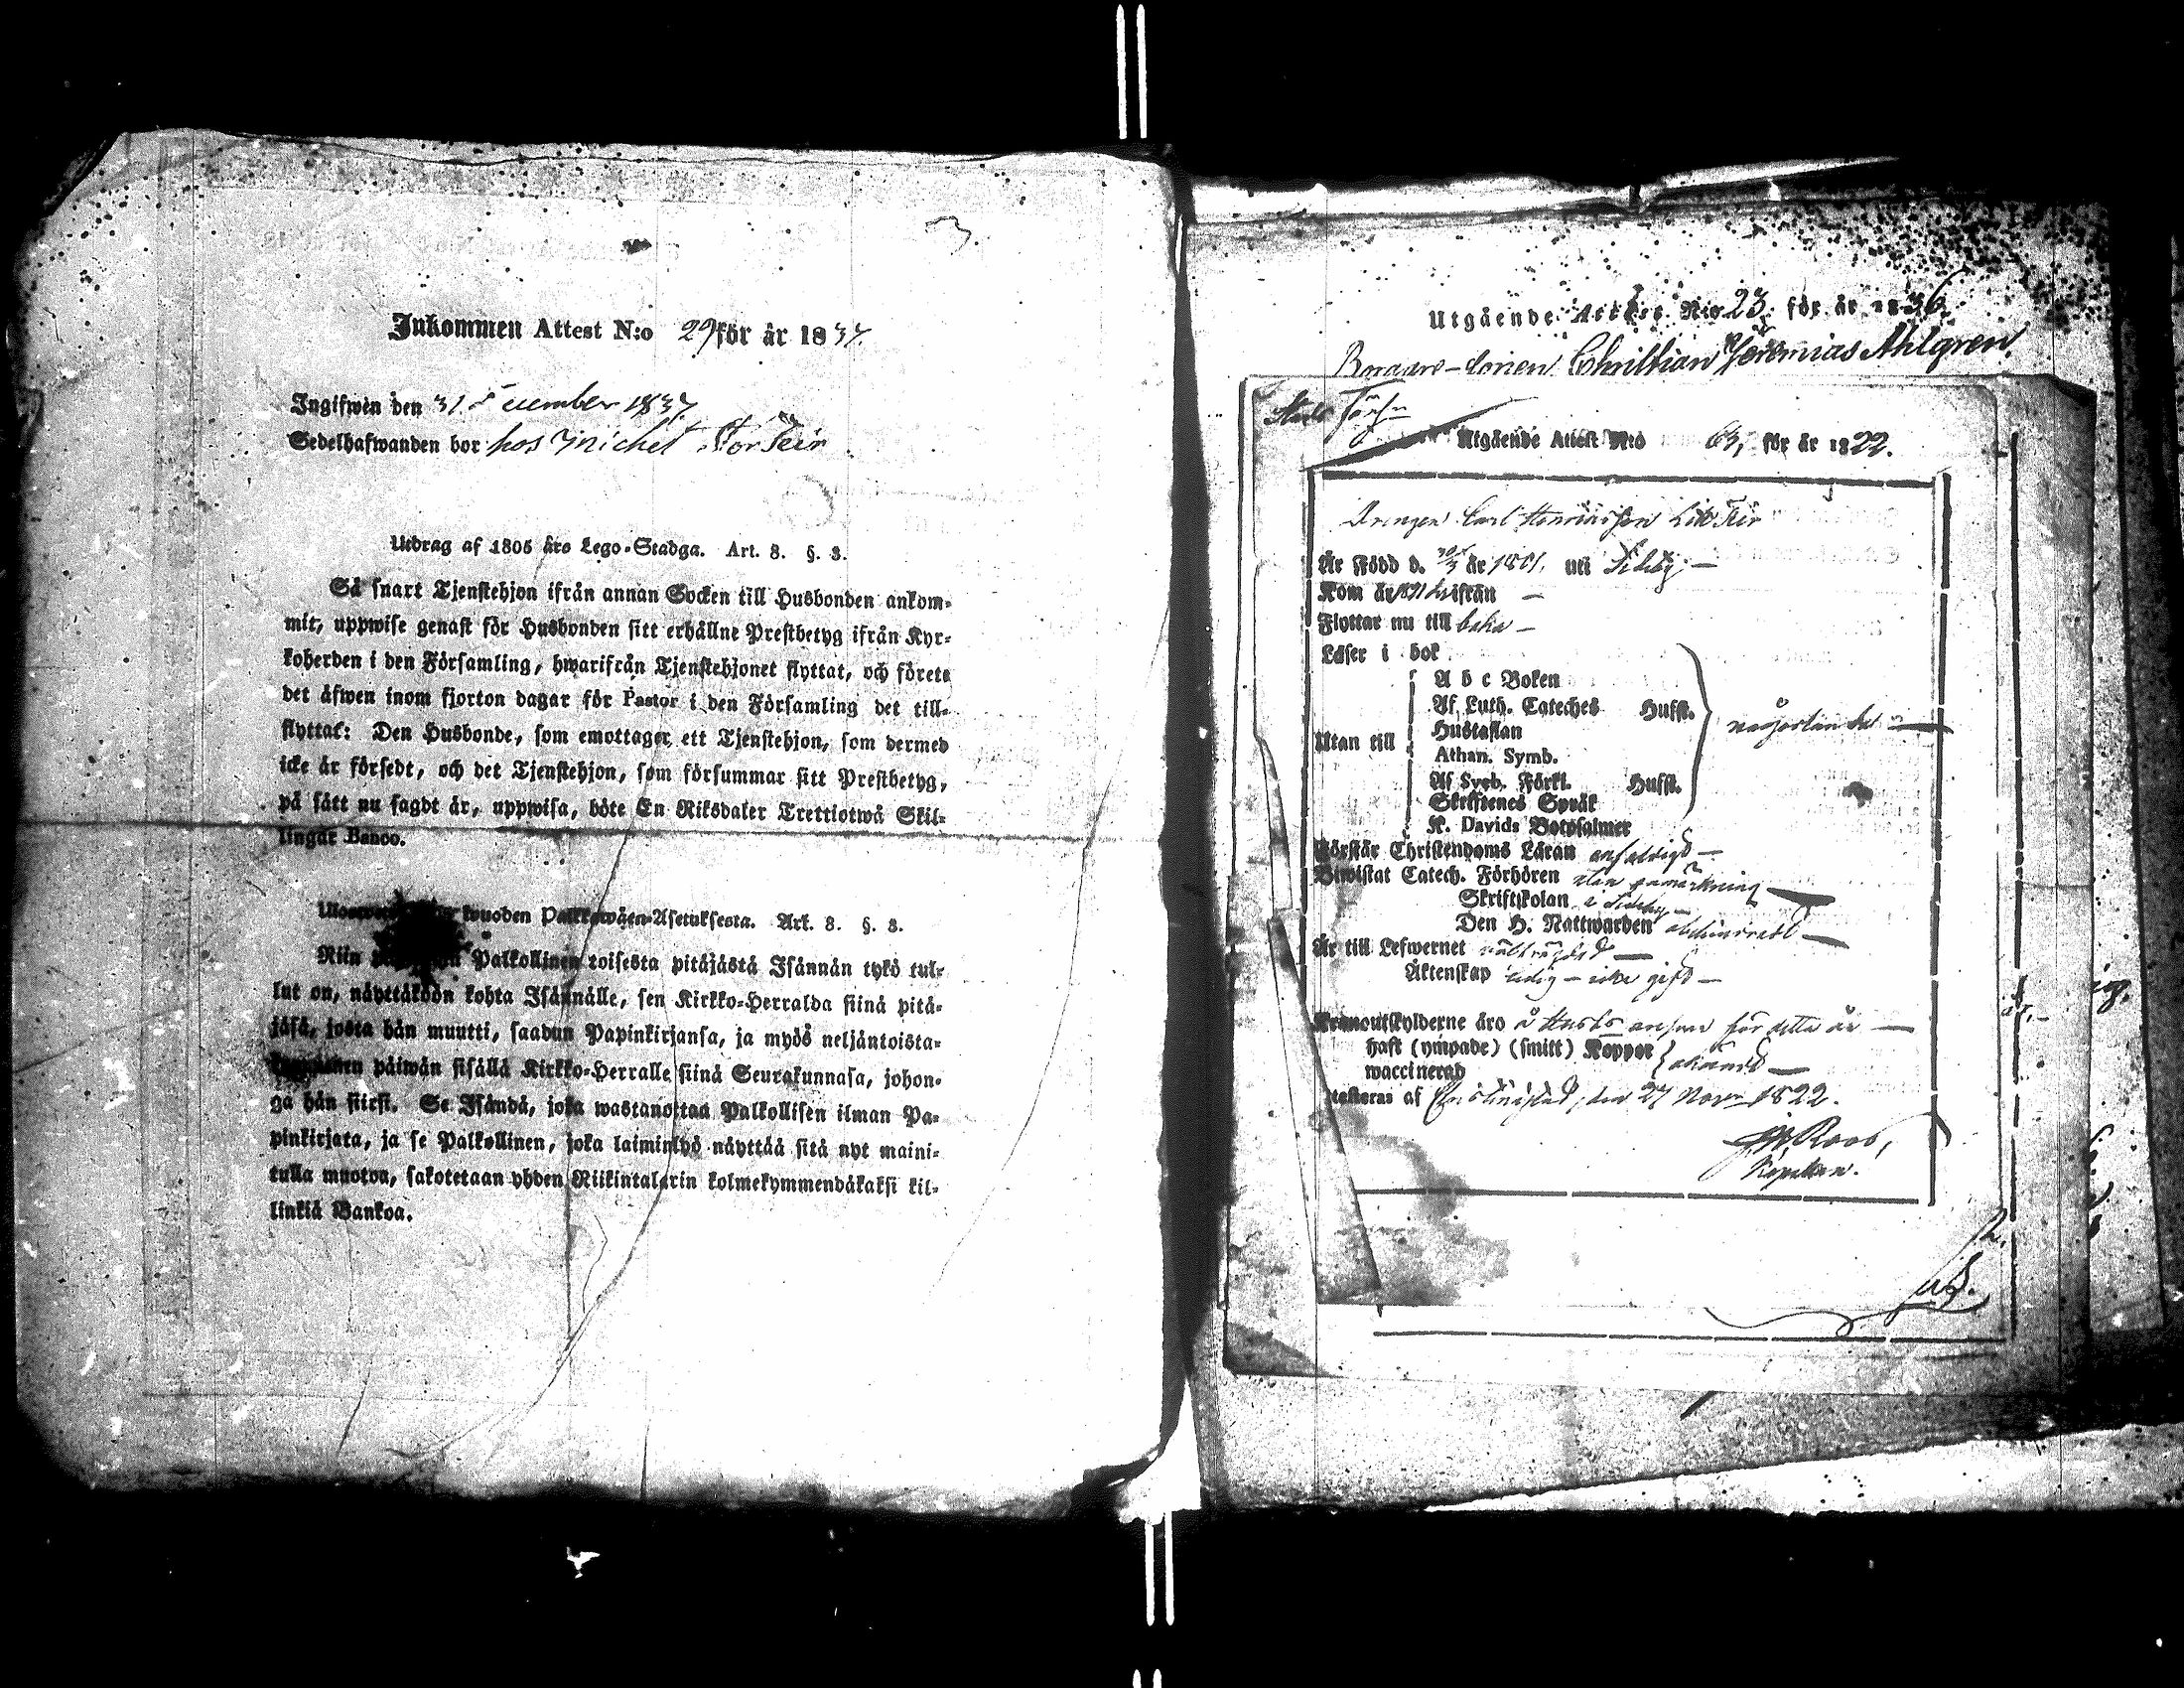 3.
Inkommen Attest N:o 29 för år 1837.
Ingifwen den 31 December 1837.
Sedelhafwanden bor hos Michel
Utdrag af 1805 års Lego-Stadga. Art. 8. §. 3.
Så snart Tjenstehjon ifrån annan Socken till Husbonden ankom-
mit, uppwise genast för Husbonden sitt erhållne Prestbetyg ifrån Kyr-
koherden i den Församling, hwarifrån Tjenstehjonet flyttat, och förete
det äfwen inom fjorton dagar för Pastor i den Församling det till-
flyttat: Den Husbonde, som emottager ett Tjenstehjon, som dermed
icke är försedt, och det Tjenstehjon, som försummar sitt Prestbetyg,
på sätt nu sagdt är, uppwisa, böte En Riksdaler Trettiotwå Skil-
lingar Banco.
wuoden Palkkawäen-Asetuksesta. Art. 8. §. 3.
Niin Palkollinen toisesta pitäjästä Isännän tykö tul-
lut on, näyttäköön kohta Isännälle, sen Kirkko-Herralda siinä pitä-
jäsä, josta hän muutti, saadun Papinkirjansa, ja myös neljäntoista-
päiwän sisällä Kirkko-Herralle siinä Seurakunnasa, johon-
ga hän siirsi. Se Isändä, joka wastanottaa Palkollisen ilman Pa-
pinkirjata, ja se Palkollinen, joka laiminlyö näyttää sitä nyt maini-
tulla muotoa, sakotetaan yhden Riikintalarin kolmekymmendäkaksi kil-
linkiä Bankoa.
Utgående Attest N:o 23. för år 1836.
Borgare-Sonen Christian Jeremias Ahlgren.
Utgående Attest N:o 63, för år 1822.
Drengen Carl Henriksson
Är Född d. år 1801. uti Sideby. —
Kom år ifrån —
Flyttar nu till baka —
Läser i bok
A b c Boken
Af Luth. Cateches Hufst.
Hustaflan
Utan till
Athan. Symb.
någorlunda —
Af Sveb. Förkl. Hufst.
Skriftenes Språk
K. Davids Botpsalmer
Förstår Christendoms Läran enfaldigt —
Biwistat Catech. Förhören utan anmärkning —
Skriftskolan i Sideby —
Den H. Nattwarden admitterad —
Är till Lefwernet välfrägdad —
Äktenskap ledig — icke gift —
Kronoutskylderne äro å Husb. ansvar för detta år —
haft (ympade) (smitt) Koppor
waccinerad
Attesteras af Christinestad, den 27 Nov. 1822.
Roos,
Kapellan.